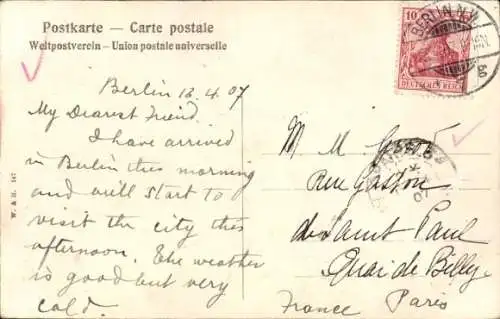 Postkarte — Carte postale
Weltpostverein – Union postale universelle
Berlin 12.4.07
My Dearest Friend.
I have arrived
in Berlin this morning
and will start to
visit the city this
afternoon. The weather
is good but very
cold.
BERLIN N.W.
10
DEUTSCHES REICH
M M
Rue Gaston
de Saint Paul
Quai de Billy
France Paris
W. & H. 147